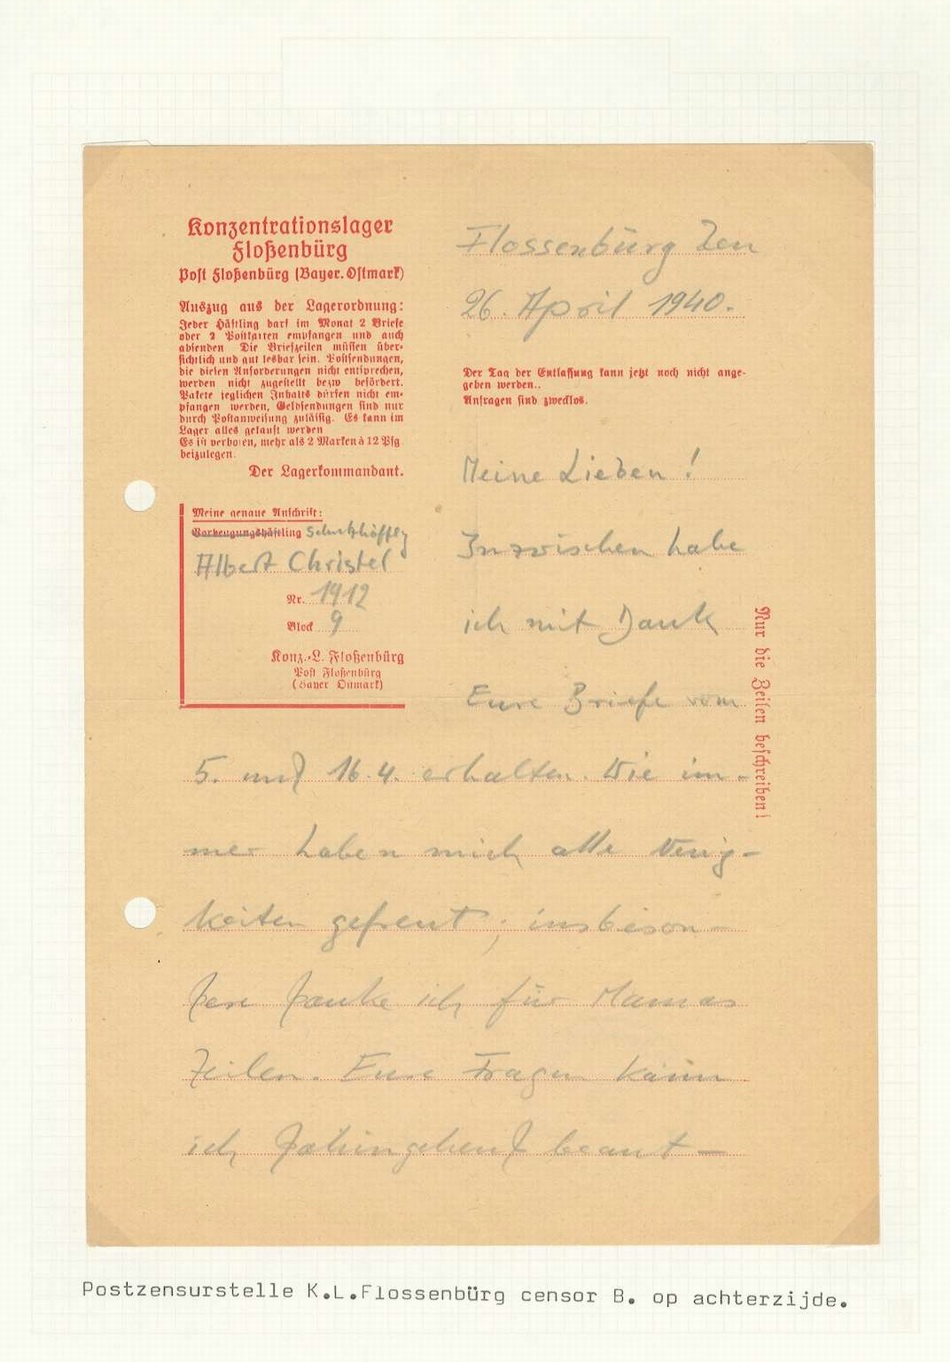 Konzentrationslager
Floßenbürg
Post Floßenbürg (Bayer. Ostmark)
Auszug aus der Lagerordnung:
Jeder Häftling darf im Monat 2 Briefe
oder 2 Postkarten empfangen und auch
absenden Die Briefzeilen müssen über-
sichtlich und gut lesbar sein. Postsendungen,
die diesen Anforderungen nicht entsprechen,
werden nicht zugestellt bezw befördert.
Pakete jeglichen Inhalts dürfen nicht em-
pfangen werden, Geldsendungen sind nur
durch Postanweisung zulässig. Es kann im
Lager alles gekauft werden
Es ist verboten, mehr als 2 Marken à 12 Pfg
beizulegen.
Der Lagerkommandant.
Meine genaue Anschrift:
Vorbeugungshäftling Schutzhäftlg
Albert Christel
Nr. 1912
Block 9
Konz.-L. Floßenbürg
Post Floßenbürg
(Bayer Ostmark)
Flossenbürg Den
26. April 1940.
Der Tag der Entlassung kann jetzt noch nicht ange-
geben werden..
Anfragen sind zwecklos.
Meine Lieben!
Inzwischen habe
ich mit Dank
Eure Briefe vom
5. und 16.4. erhalten. Wie im-
mer haben mich alle Neuig-
keiten gefreut; insbeson-
dere danke ich für Mamas
Zeilen. Eure Fragen kann
ich dahingehend beant-
Nur die Zeilen beschreiben!
Postzensurstelle K.L.Flossenbürg censor B. op achterzijde.